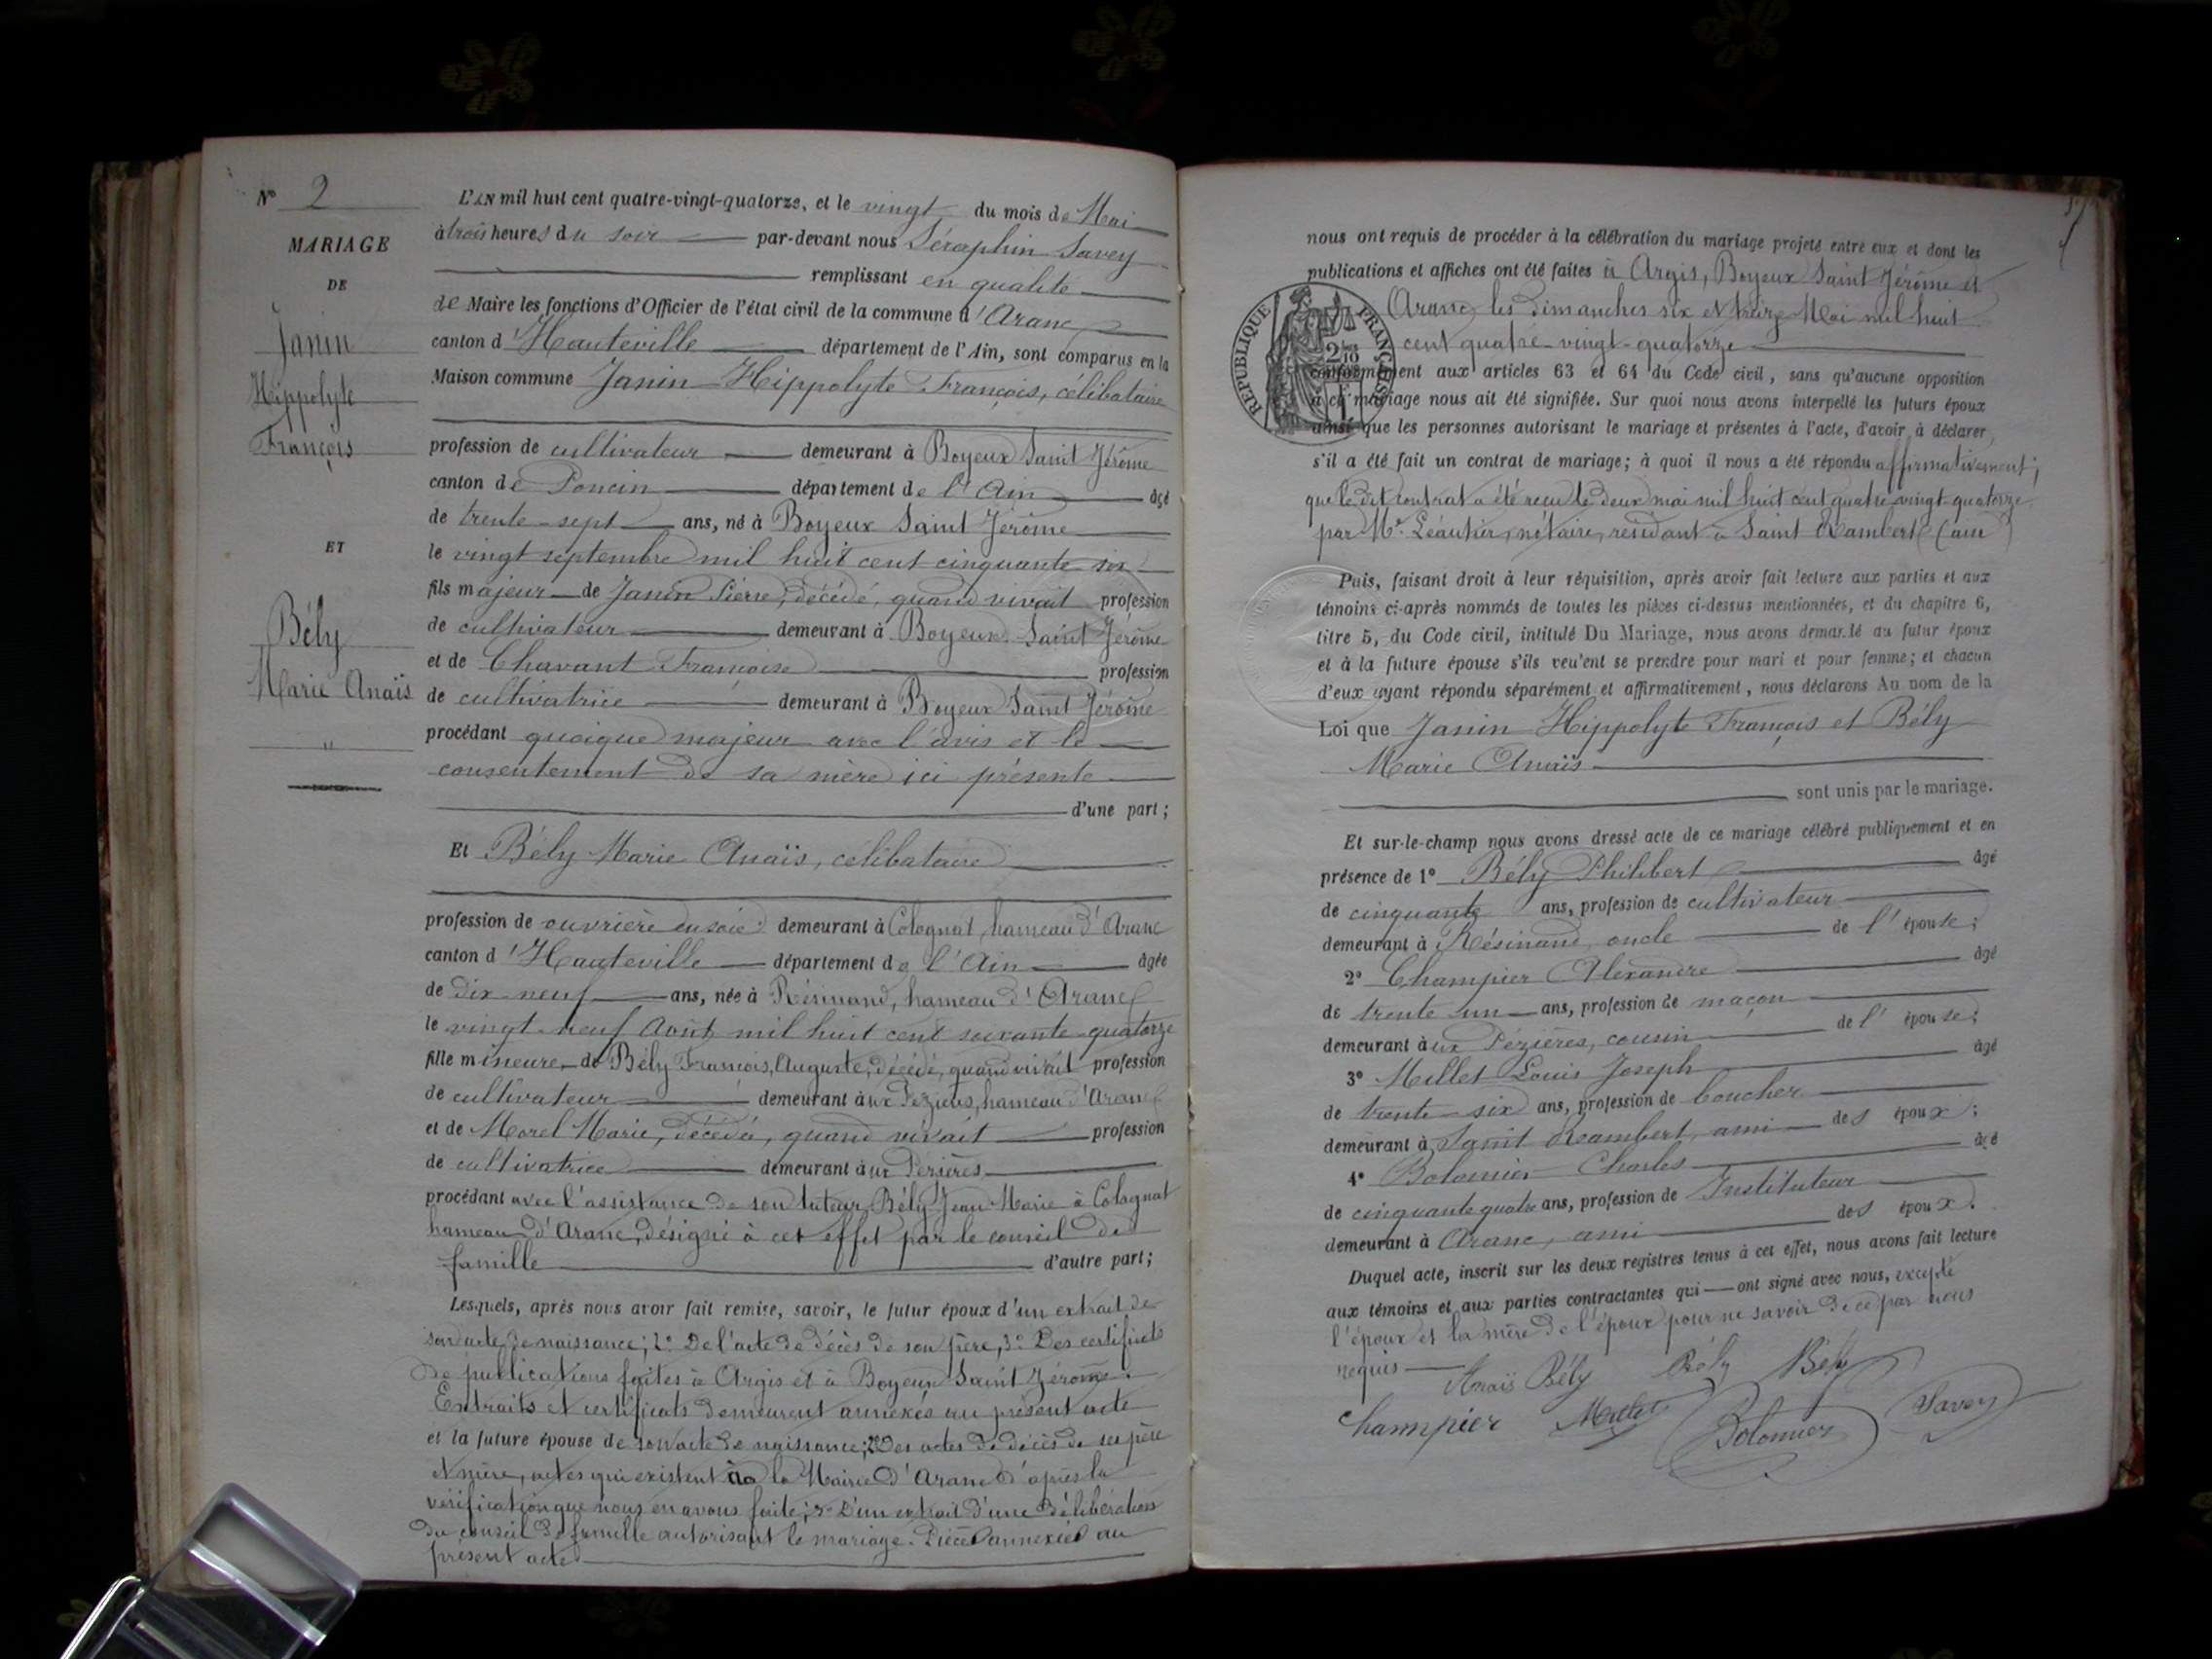 N° 2
MARIAGE
DE
Janin
Hippolyte
François
ET
Bély
Marie Anaïs
"
L'AN mil huit cent quatre-vingt-quatorze, et le vingt du mois de Mai
à trois heures du soir par-devant nous Séraphin Savey
remplissant en qualité
de Maire les fonctions d'Officier de l'état civil de la commune d'Aranc
canton d'Hauteville département de l'Ain, sont comparus en la
Maison commune Janin Hippolyte François, célibataire
profession de cultivateur demeurant à Boyeux Saint Jérôme
canton de Poncin département de l'Ain âgé
de trente-sept ans, né à Boyeux Saint Jérôme
le vingt septembre mil huit cent cinquante six
fils majeur de Janin Pierre, décédé, quand vivait profession
de cultivateur demeurant à Boyeux Saint Jérôme
et de Chavant Françoise profession
de cultivatrice demeurant à Boyeux Saint Jérôme
procédant quoique majeur avec l'avis et le
consentement de sa mère ici présente
d'une part;
Et Bély Marie Anaïs, célibataire
profession de ouvrière en soie demeurant à Colognat, hameau d'Aranc
canton d'Hauteville département de l'Ain âgée
de dix-neuf ans, née à Résinand, hameau d'Aranc
le vingt-neuf Août mil huit cent soixante-quatorze
fille mineure de Bély François, Auguste, décédé, quand vivait profession
de cultivateur demeurant aux Pézières, hameau d'Aranc
et de Morel Marie, décédée, quand vivait profession
de cultivatrice demeurant aux Pézières
procédant avec l'assistance de son tuteur Bély Jean-Marie à Colognat
hameau d'Aranc, désigné à cet effet par le conseil de
famille d'autre part;
Lesquels, après nous avoir fait remise, savoir, le futur époux d'un extrait de
son acte de naissance; 2° De l'acte de décès de son père, 3° Des certificats
de publications faites à Argis et à Boyeux Saint Jérôme.
Extraits et certificats demeurent annexés au présent acte
et la future épouse de son acte de naissance; 2° Des actes de décès de ses père
et mère, actes qui existent à la Mairie d'Aranc d'après la
vérification que nous en avons faite; 3° D'un extrait d'une délibération
du conseil de famille autorisant le mariage. Pièces annexées au
présent acte
nous ont requis de procéder à la célébration du mariage projeté entre eux et dont les
publications et affiches ont été faites à Argis, Boyeux Saint Jérôme et
Aranc les dimanches six et treize Mai mil huit
cent quatre-vingt-quatorze
RÉPUBLIQUE FRANÇAISE
conformément aux articles 63 et 64 du Code civil, sans qu'aucune opposition
à ce mariage nous ait été signifiée. Sur quoi nous avons interpellé les futurs époux
ainsi que les personnes autorisant le mariage et présentes à l'acte, d'avoir à déclarer
s'il a été fait un contrat de mariage; à quoi il nous a été répondu affirmativement;
que le dit contrat a été reçu le deux mai mil huit cent quatre vingt quatorze
par Me Léautier, notaire, résidant à Saint Rambert (Ain)
Puis, faisant droit à leur réquisition, après avoir fait lecture aux parties et aux
témoins ci-après nommés de toutes les pièces ci-dessus mentionnées, et du chapitre 6,
titre 5, du Code civil, intitulé Du Mariage, nous avons demandé au futur époux
et à la future épouse s'ils veulent se prendre pour mari et pour femme; et chacun
d'eux ayant répondu séparément et affirmativement, nous déclarons Au nom de la
Loi que Janin Hippolyte François et Bély
Marie Anaïs
sont unis par le mariage.
Et sur-le-champ nous avons dressé acte de ce mariage célébré publiquement et en
présence de 1° Bély Philibert âgé
de cinquante ans, profession de cultivateur
demeurant à Résinand, oncle de l'épouse;
2° Champier Alexandre âgé
de trente un ans, profession de maçon
demeurant aux Pézières, cousin de l'épouse;
3° Millet Louis Joseph âgé
de trente-six ans, profession de boucher
demeurant à Saint Rambert, ami des époux;
4° Bolomier Charles âgé
de cinquante quatre ans, profession de Instituteur
demeurant à Aranc, ami des époux.
Duquel acte, inscrit sur les deux registres tenus à cet effet, nous avons fait lecture
aux témoins et aux parties contractantes qui ont signé avec nous, excepté
l'époux et la mère de l'époux pour ne savoir de ce par nous
requis
Anaïs Bély Bély Bély
Champier Millet Bolomier Savey